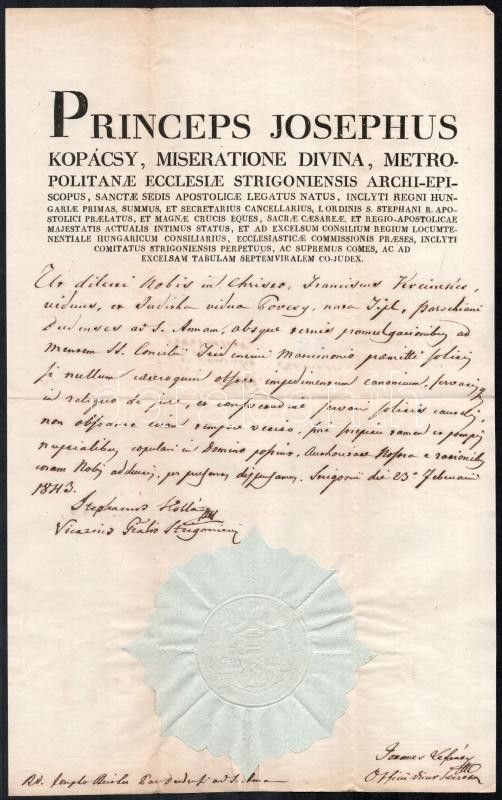 PRINCEPS JOSEPHUS
KOPÁCSY, MISERATIONE DIVINA, METRO-
POLITANÆ ECCLESIÆ STRIGONIENSIS ARCHI-EPI-
SCOPUS, SANCTÆ SEDIS APOSTOLICÆ LEGATUS NATUS, INCLYTI REGNI HUN-
GARIÆ PRIMAS, SUMMUS, ET SECRETARIUS CANCELLARIUS, I. ORDINIS S. STEPHANI R. APO-
STOLICI PRÆLATUS, ET MAGNÆ CRUCIS EQUES, SACRÆ CÆSAREÆ, ET REGIO-APOSTOLICAE
MAJESTATIS ACTUALIS INTIMUS STATUS, ET AD EXCELSUM CONSILIUM REGIUM LOCUMTE-
NENTIALE HUNGARICUM CONSILIARIUS, ECCLESIASTICÆ COMMISSIONIS PRÆSES, INCLYTI
COMITATUS STRIGONIENSIS PERPETUUS, AC SUPREMUS COMES, AC AD
EXCELSAM TABULAM SEPTEMVIRALEM CO-JUDEX.
Ut dilecti Nobis in Christo, Franciscus
viduus, et Juditha vidua nata parochiani
Budenses ad S. Annam, absque ternis promulgationibus ad
Mentem SS. Concilii Tridentini Matrimonio præmitti solitis
si nullum cæteroquin obstet impedimentum canonicum, servatisq
in reliquo de jure, et consvetudine servari solitis cautelis,
non obstante etiam tempore vetito, sine strepitu tamen et pompa
nuptialibus copulari in Domino possint, Authoritate Nostra e rationibus
coram Nobis adductis, per præsentes dispensamus. Strigonii die 23a Februarii
1843.
Stephanus
Vicarius Gralis Strigoniensis
Joannes